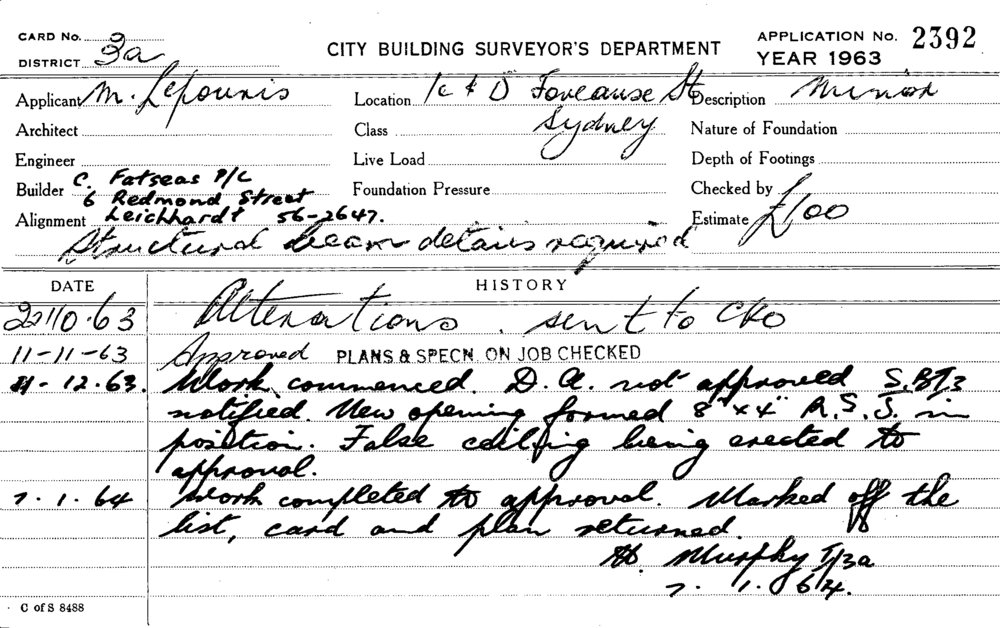 CARD No. 3a
DISTRICT
CITY BUILDING SURVEYOR'S DEPARTMENT
APPLICATION No. 2392
YEAR 1963
Applicant M. Lepouris
Location Foveause St
Sydney
Description Minor
Architect
Class
Nature of Foundation
Engineer
Live Load
Depth of Footings
Builder C. Fatseas P/L
6 Redmond Street
Foundation Pressure
Checked by
Alignment Leichhardt 56-2647.
Estimate £100
Structural beam details required
DATE
HISTORY
22/10.63 Alterations. sent to CRO
11-11-63 Approved PLANS & SPECN. ON JOB CHECKED
12.63. Work commenced. D.A. not approved
notified. New opening formed 8"x4" R.S.J. in
position. False ceiling being erected to
approval.
7.1.64 Work completed to approval. Marked off the
list, card and plan returned.
Murphy T/3a
7.1.64.
C of S 8488